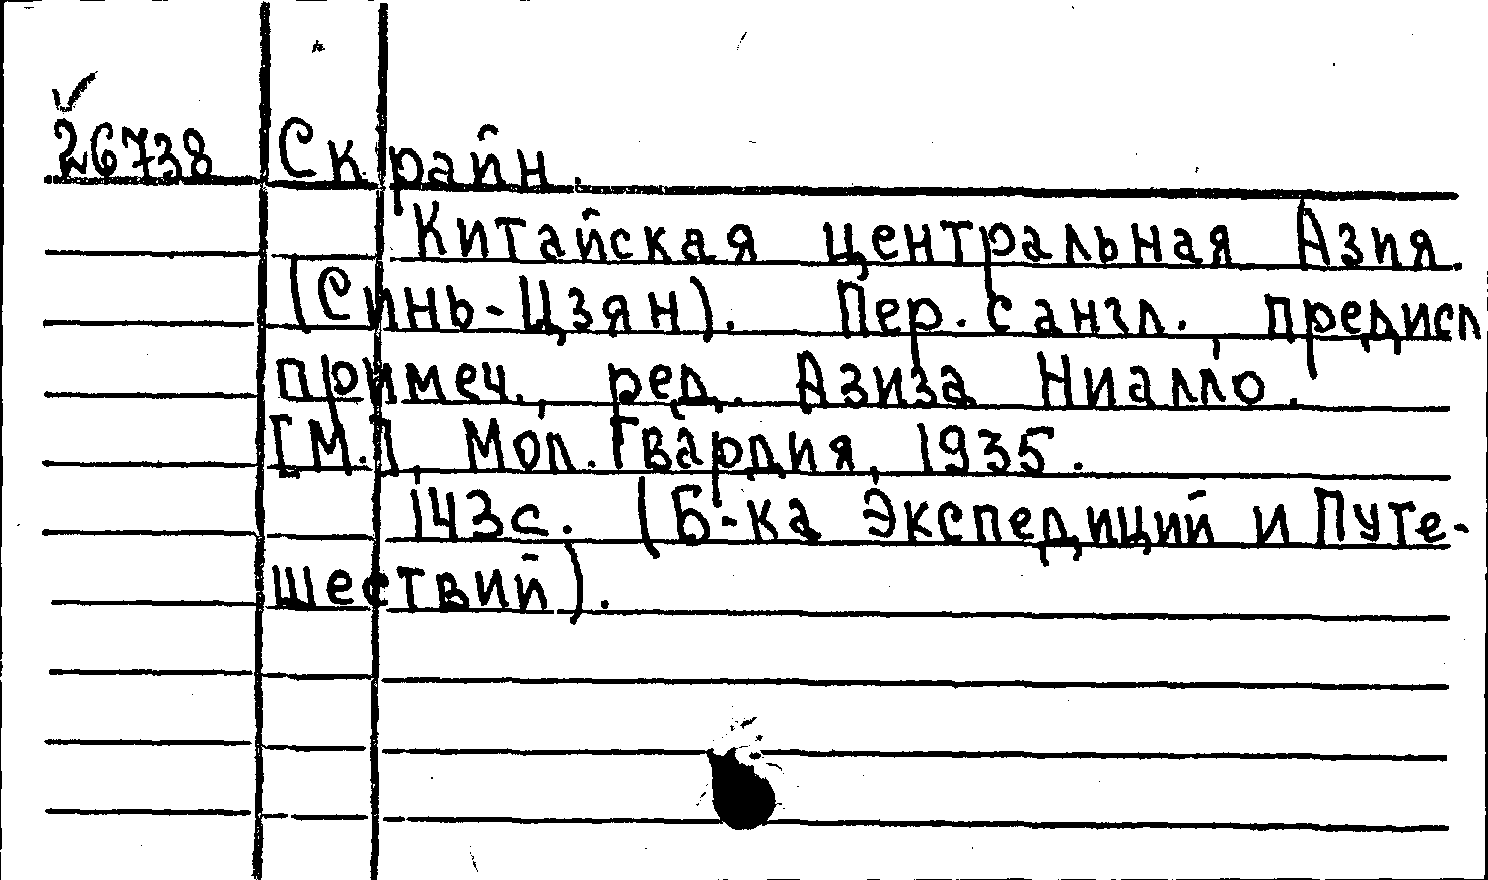 26738 Скрайн.
Китайская центральная Азия
(Синь-Цзян). Пер. с англ. предисл
примеч., ред. Азиза Ниалло.
[М.], Мол. Гвардия, 1935.
143с. (Б-ка Экспедиций и Путе-
шествий).